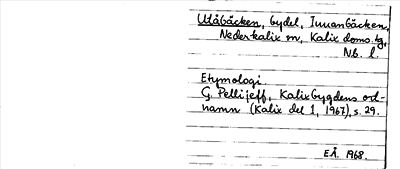 Utåbäcken, bydel, Innanbäcken,
Nederkalix sn, Kalix doms. tg,
N.b. l.
Etymologi
G. Pellijeff, Kalixbygdens ort-
namn (Kalix del 1, 1967), s. 29.
E.Å. 1968.